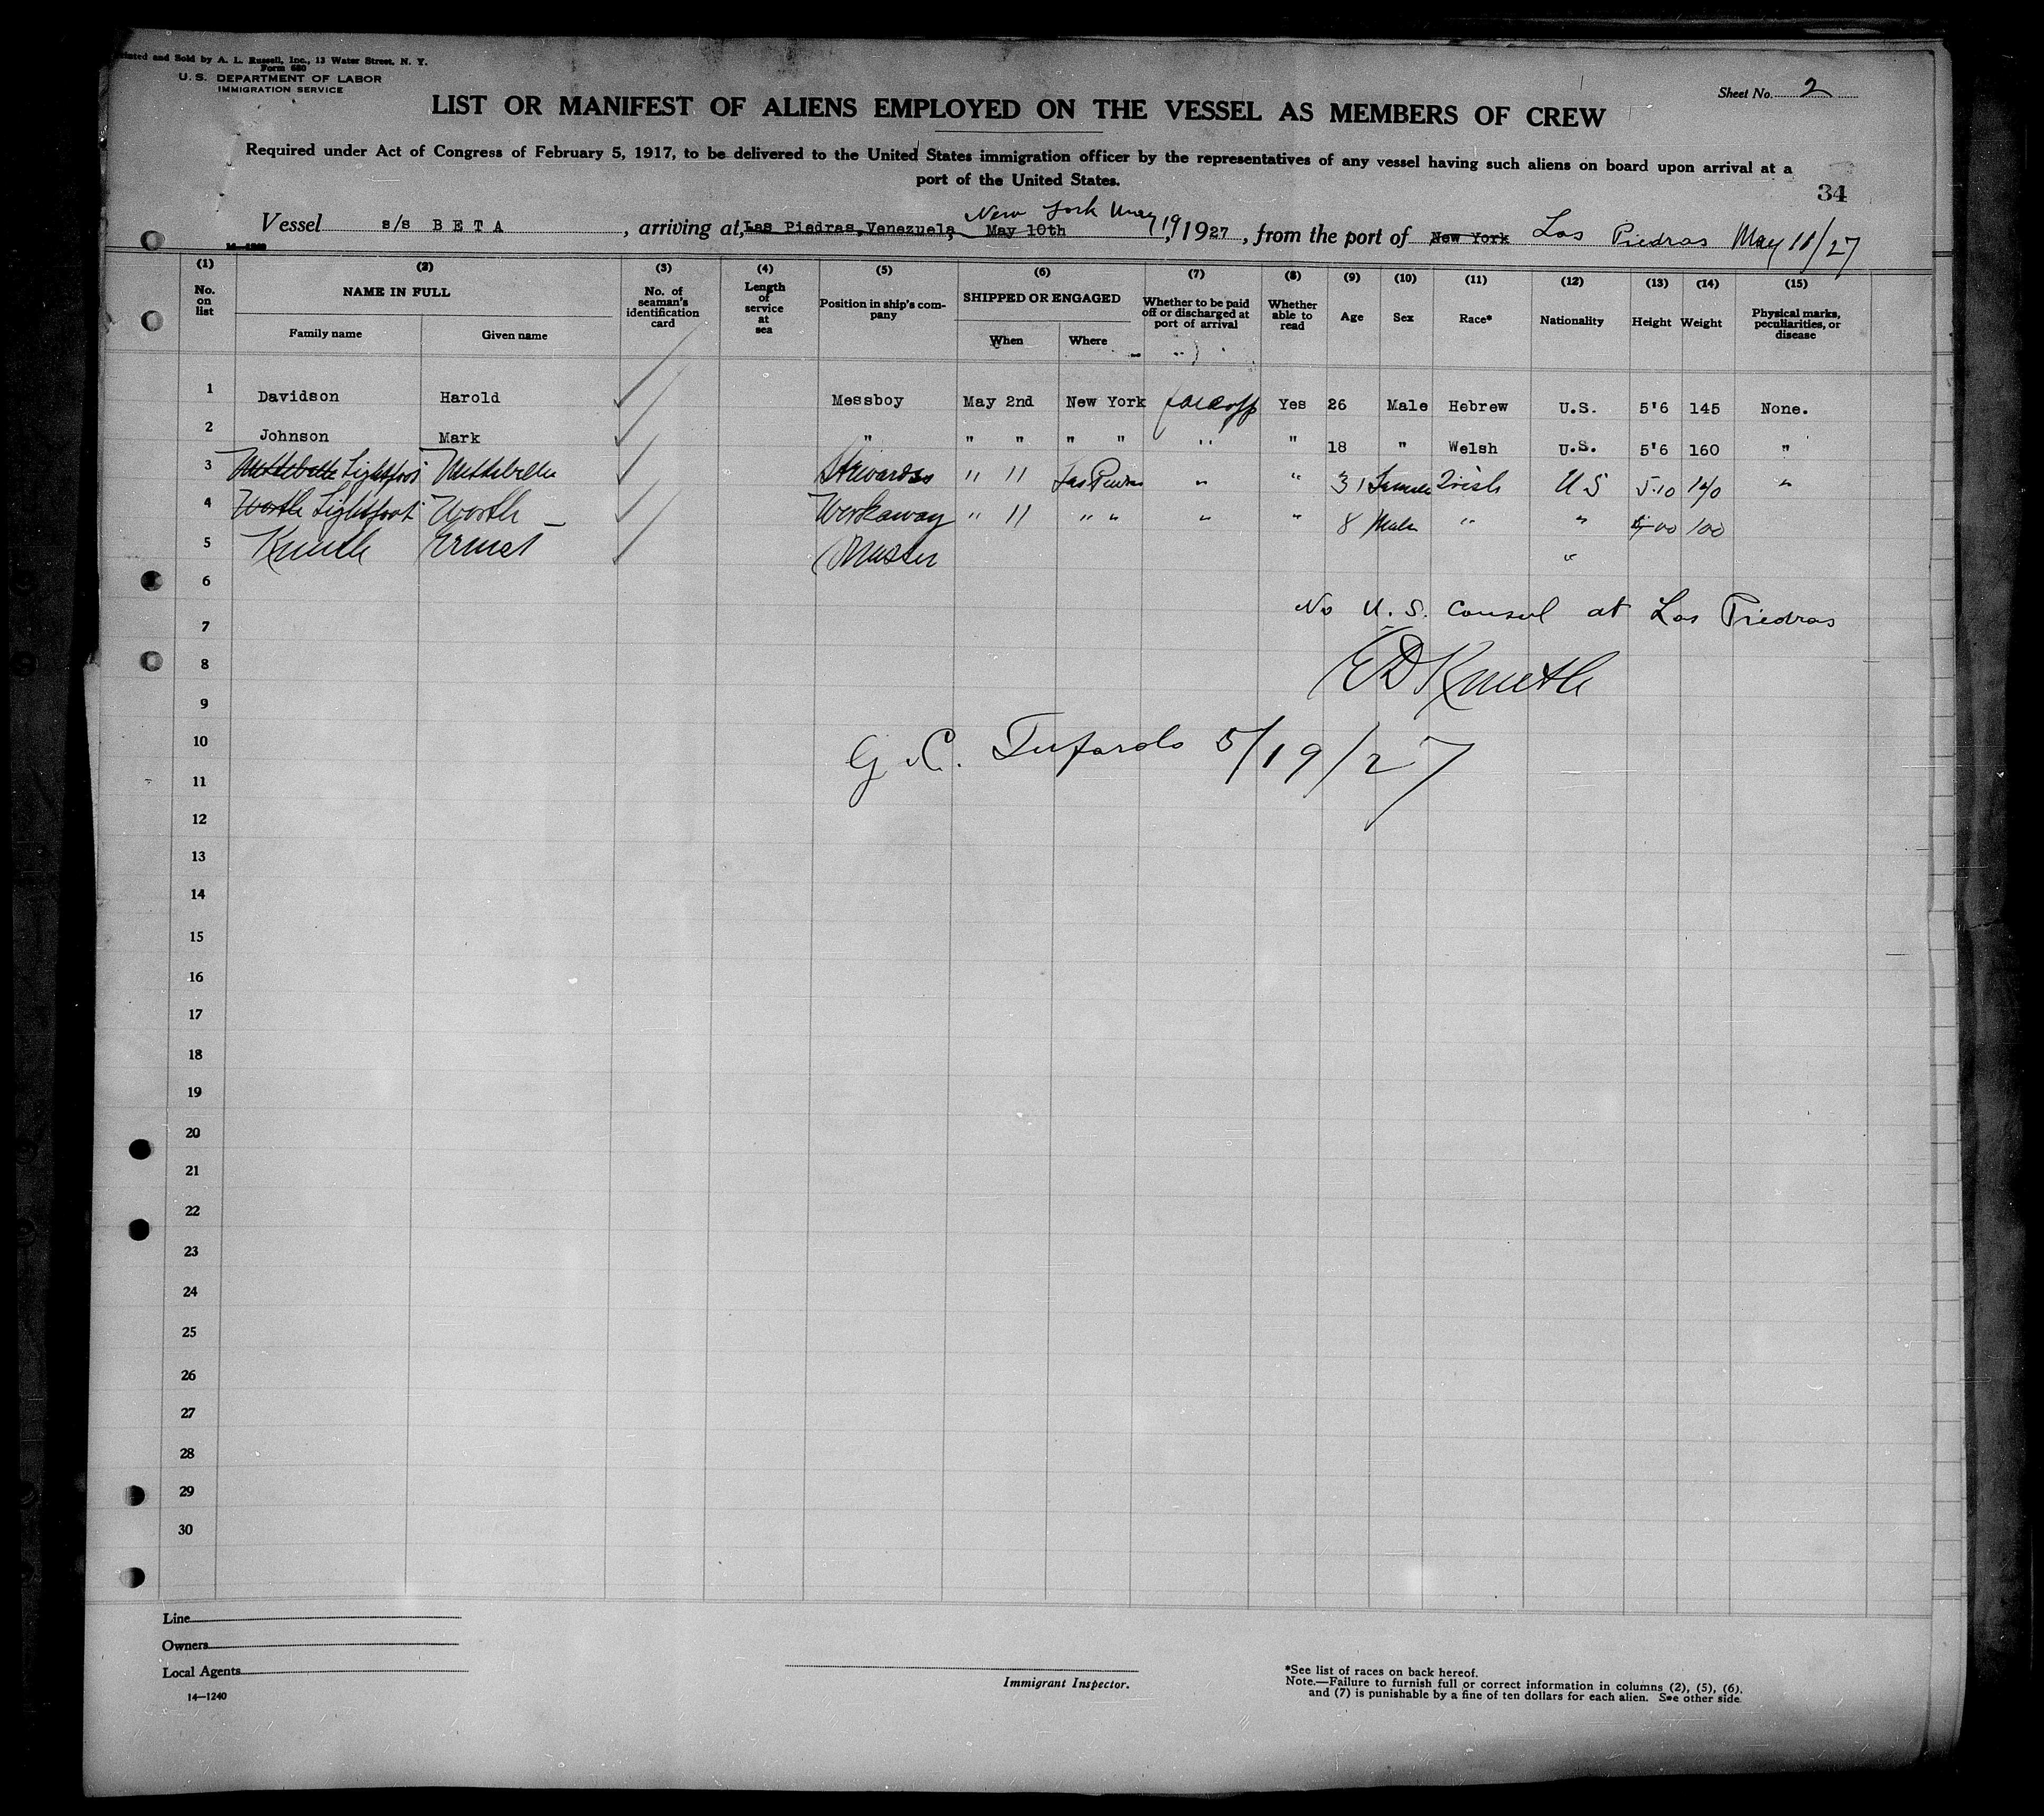 Printed and Sold by A. L. Russell, Inc., 13 Water Street, N. Y.
Form 680
U. S. DEPARTMENT OF LABOR
IMMIGRATION SERVICE
Sheet No. 2
LIST OR MANIFEST OF ALIENS EMPLOYED ON THE VESSEL AS MEMBERS OF CREW
Required under Act of Congress of February 5, 1917, to be delivered to the United States immigration officer by the representatives of any vessel having such aliens on board upon arrival at a
port of the United States.
34
New York May 19
Vessel s/s BETA, arriving at, Las Piedras, Venezuela, May 10th, 1927, from the port of New York Las Piedras May 11/27
14-1240
(1) (2) (3) (4) (5) (6) (7) (8) (9) (10) (11) (12) (13) (14) (15)
No. on list NAME IN FULL No. of seaman's identification card Length of service at sea Position in ship's company SHIPPED OR ENGAGED Whether to be paid off or discharged at port of arrival Whether able to read Age Sex Race* Nationality Height Weight Physical marks, peculiarities, or disease
Family name Given name When Where
1 Davidson Harold Messboy May 2nd New York Yes 26 Male Hebrew U.S. 5'6 145 None.
2 Johnson Mark " " " " " " " 18 " Welsh U.S. 5'6 160 "
3 Lightfoot Stewardess " 11 Las Piedras " " 31 Female Irish U S 5-10 140 "
4 Worth Lightfoot Worth Workaway " 11 " " " " 8 Male " " 100
5 Knuth Ernest Master "
6
No U.S. Consul at Las Piedras
7
8
E D Knuth
9
10
G. C. Tufarolo 5/19/27
11
12
13
14
15
16
17
18
19
20
21
22
23
24
25
26
27
28
29
30
Line
Owners
Local Agents
14—1240
Immigrant Inspector.
*See list of races on back hereof.
Note.—Failure to furnish full or correct information in columns (2), (5), (6),
and (7) is punishable by a fine of ten dollars for each alien. See other side